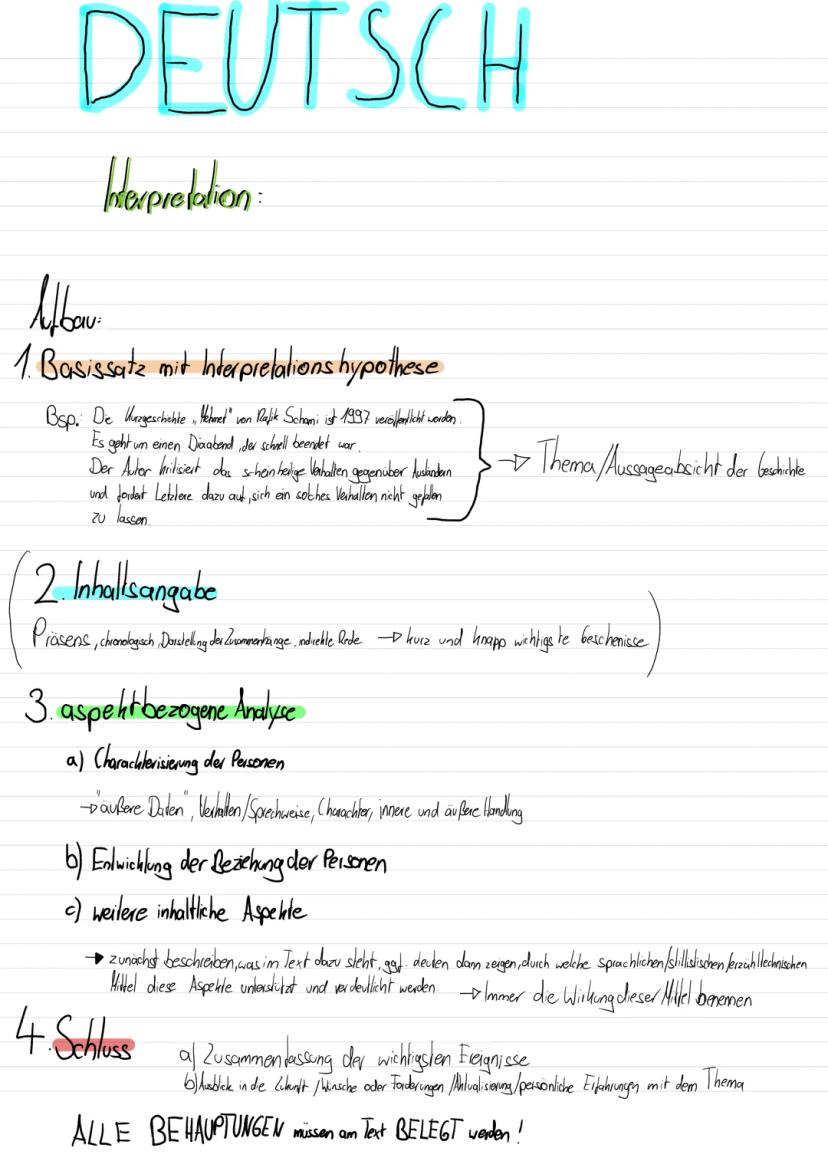 DEUTSCH
Interpretation:
Aufbau:
1. Basissatz mit Interpretationshypothese
Bsp.: Die Kurzgeschichte „Mehmet" von Rafik Schami ist 1997 veröffentlicht worden.
Es geht um einen Diaabend, der schnell beendet war.
Der Autor kritisiert das scheinheilige Verhalten gegenüber Ausländern
und fordert Letztere dazu auf, sich ein solches Verhalten nicht gefallen
zu lassen.
→ Thema/Aussageabsicht der Geschichte
2. Inhaltsangabe
Präsens, chronologisch, Darstellung der Zusammenhänge, indirekte Rede → kurz und knapp wichtigste Geschenisse
3. aspektbezogene Analyse
a) Charachterisierung der Personen
→ "äußere Daten", Verhalten/Sprechweise, Charachter, innere und äußere Handlung
b) Entwicklung der Beziehung der Personen
c) weitere inhaltliche Aspekte
→ zunächst beschreiben, was im Text dazu steht, ggf. deuten dann zeigen, durch welche sprachlichen/stillistischen/erzähltechnischen
Mittel diese Aspekte unterstützt und verdeutlicht werden → Immer die Wirkung dieser Mittel benennen
4. Schluss
a) Zusammenfassung der wichtigsten Ereignisse
b) Ausblick in die Zukunft /Wünsche oder Forderungen /Aktualisierung/persönliche Erfahrungen mit dem Thema
ALLE BEHAUPTUNGEN müssen am Text BELEGT werden!